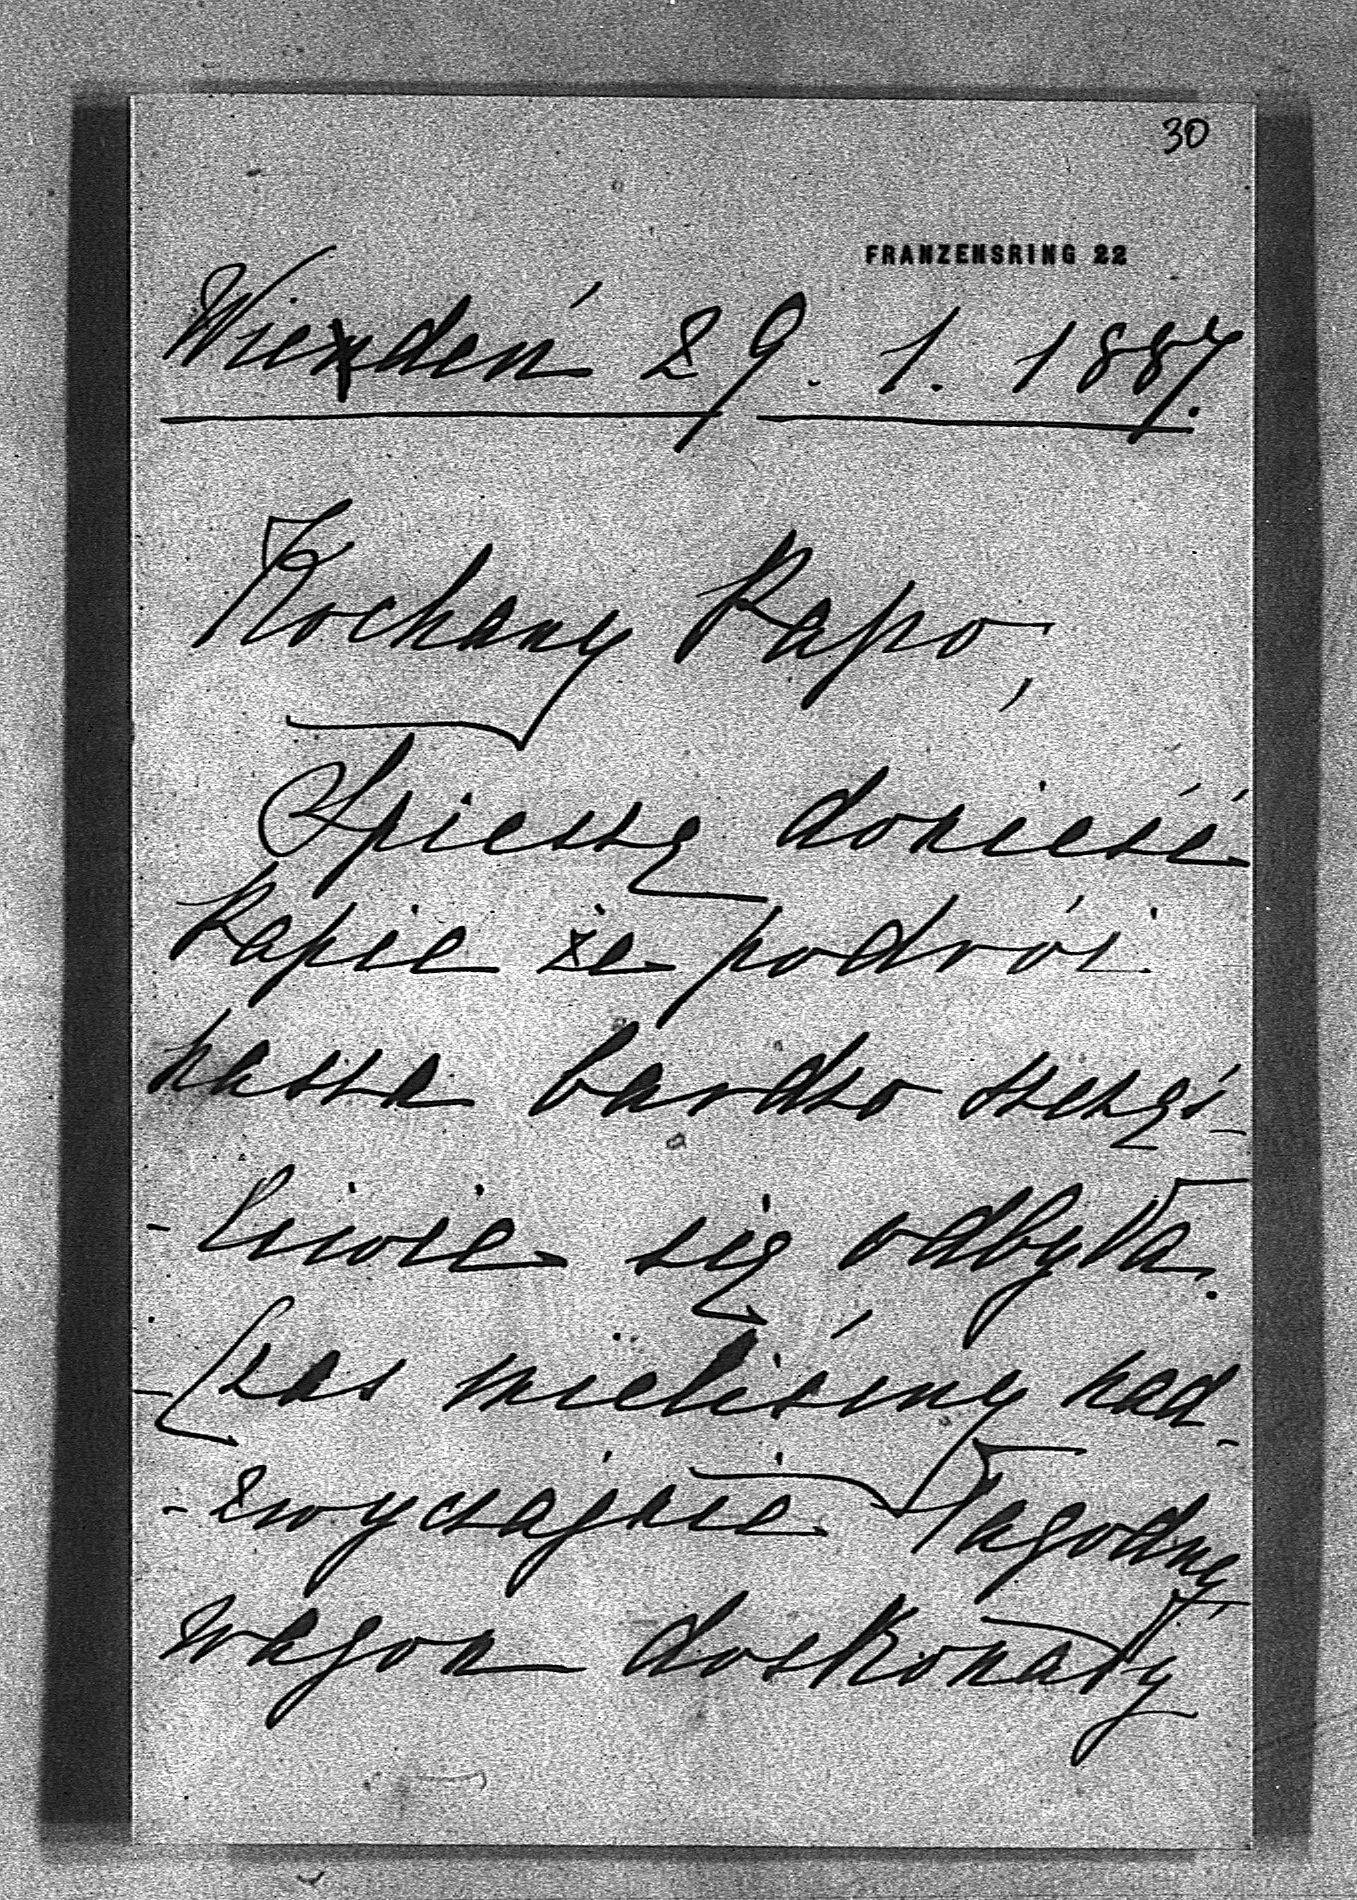 30
FRANZENSRING 22
Wiedeń 29. 1. 1887.
Kochany Papo,
Spieszę donieść
Papie że podróż
nasza bardzo szczę-
-śliwie się odbyła.
Czas mieliśmy nad-
-zwyczajnie łagodny,
wagon doskonały